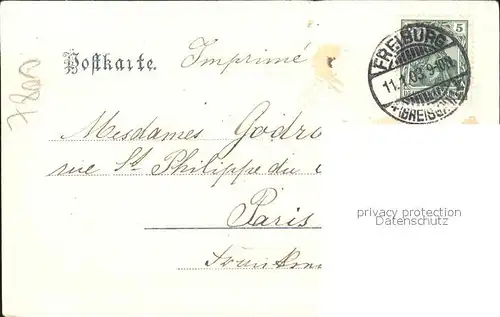 Postkarte.
Imprimé
7800
5
FREIBURG
11.1.03 9-10N.
(BREISGAU)
Mesdames Godro
rue St Philippe du
Paris
privacy protection
Datenschutz